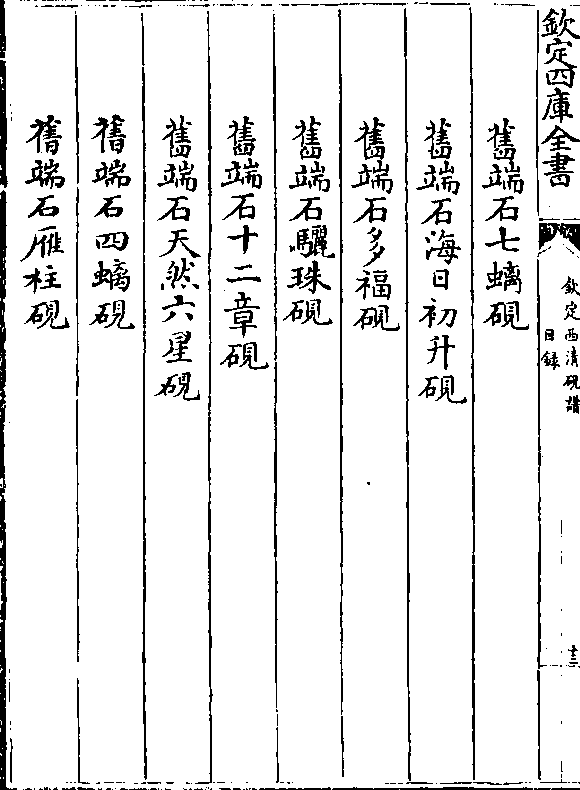 欽定四庫全書
欽定西清硯譜
目録
十三
舊端石七螭硯
舊端石海日初升硯
舊端石多福硯
舊端石驪珠硯
舊端石十二章硯
舊端石天然六星硯
舊端石四螭硯
舊端石雁柱硯